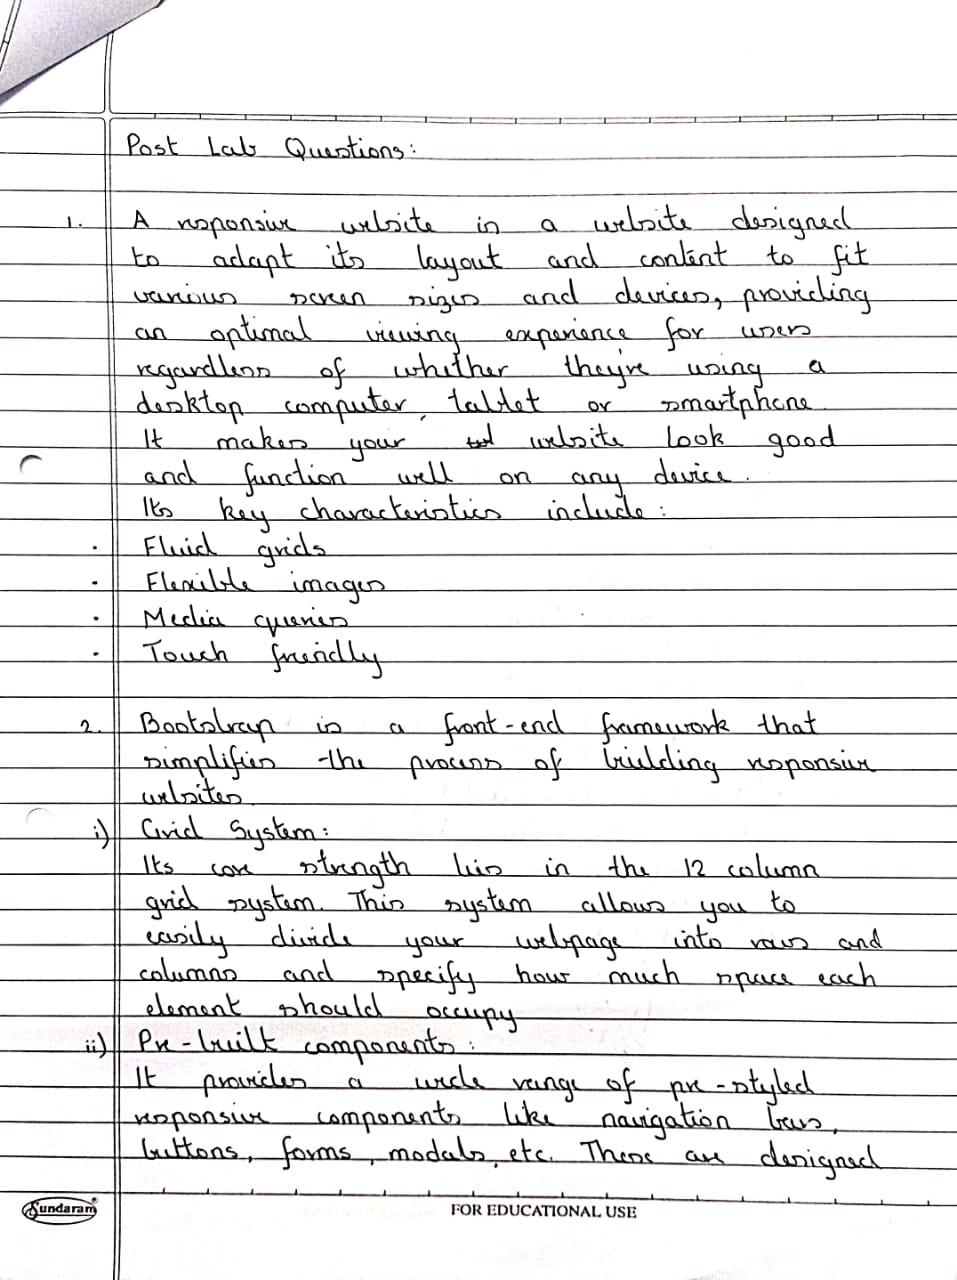 Post Lab Questions:
1. A responsive website is a website designed
to adapt its layout and content to fit
various screen sizes and devices, providing
an optimal viewing experience for users
regardless of whether they're using a
desktop computer, tablet or smartphone.
It makes your website look good
and function well on any device.
Its key characteristics include:
· Fluid grids
· Flexible images
· Media queries
· Touch friendly
2. Bootstrap is a front-end framework that
simplifies the process of building responsive
websites.
i) Grid System:
Its core strength lies in the 12 column
grid system. This system allows you to
easily divide your webpage into rows and
columns and specify how much space each
element should occupy
ii) Pre-built components:
It provides a wide range of pre-styled
responsive components like navigation bars,
buttons, forms, modals, etc. These are designed
Sundaram
FOR EDUCATIONAL USE